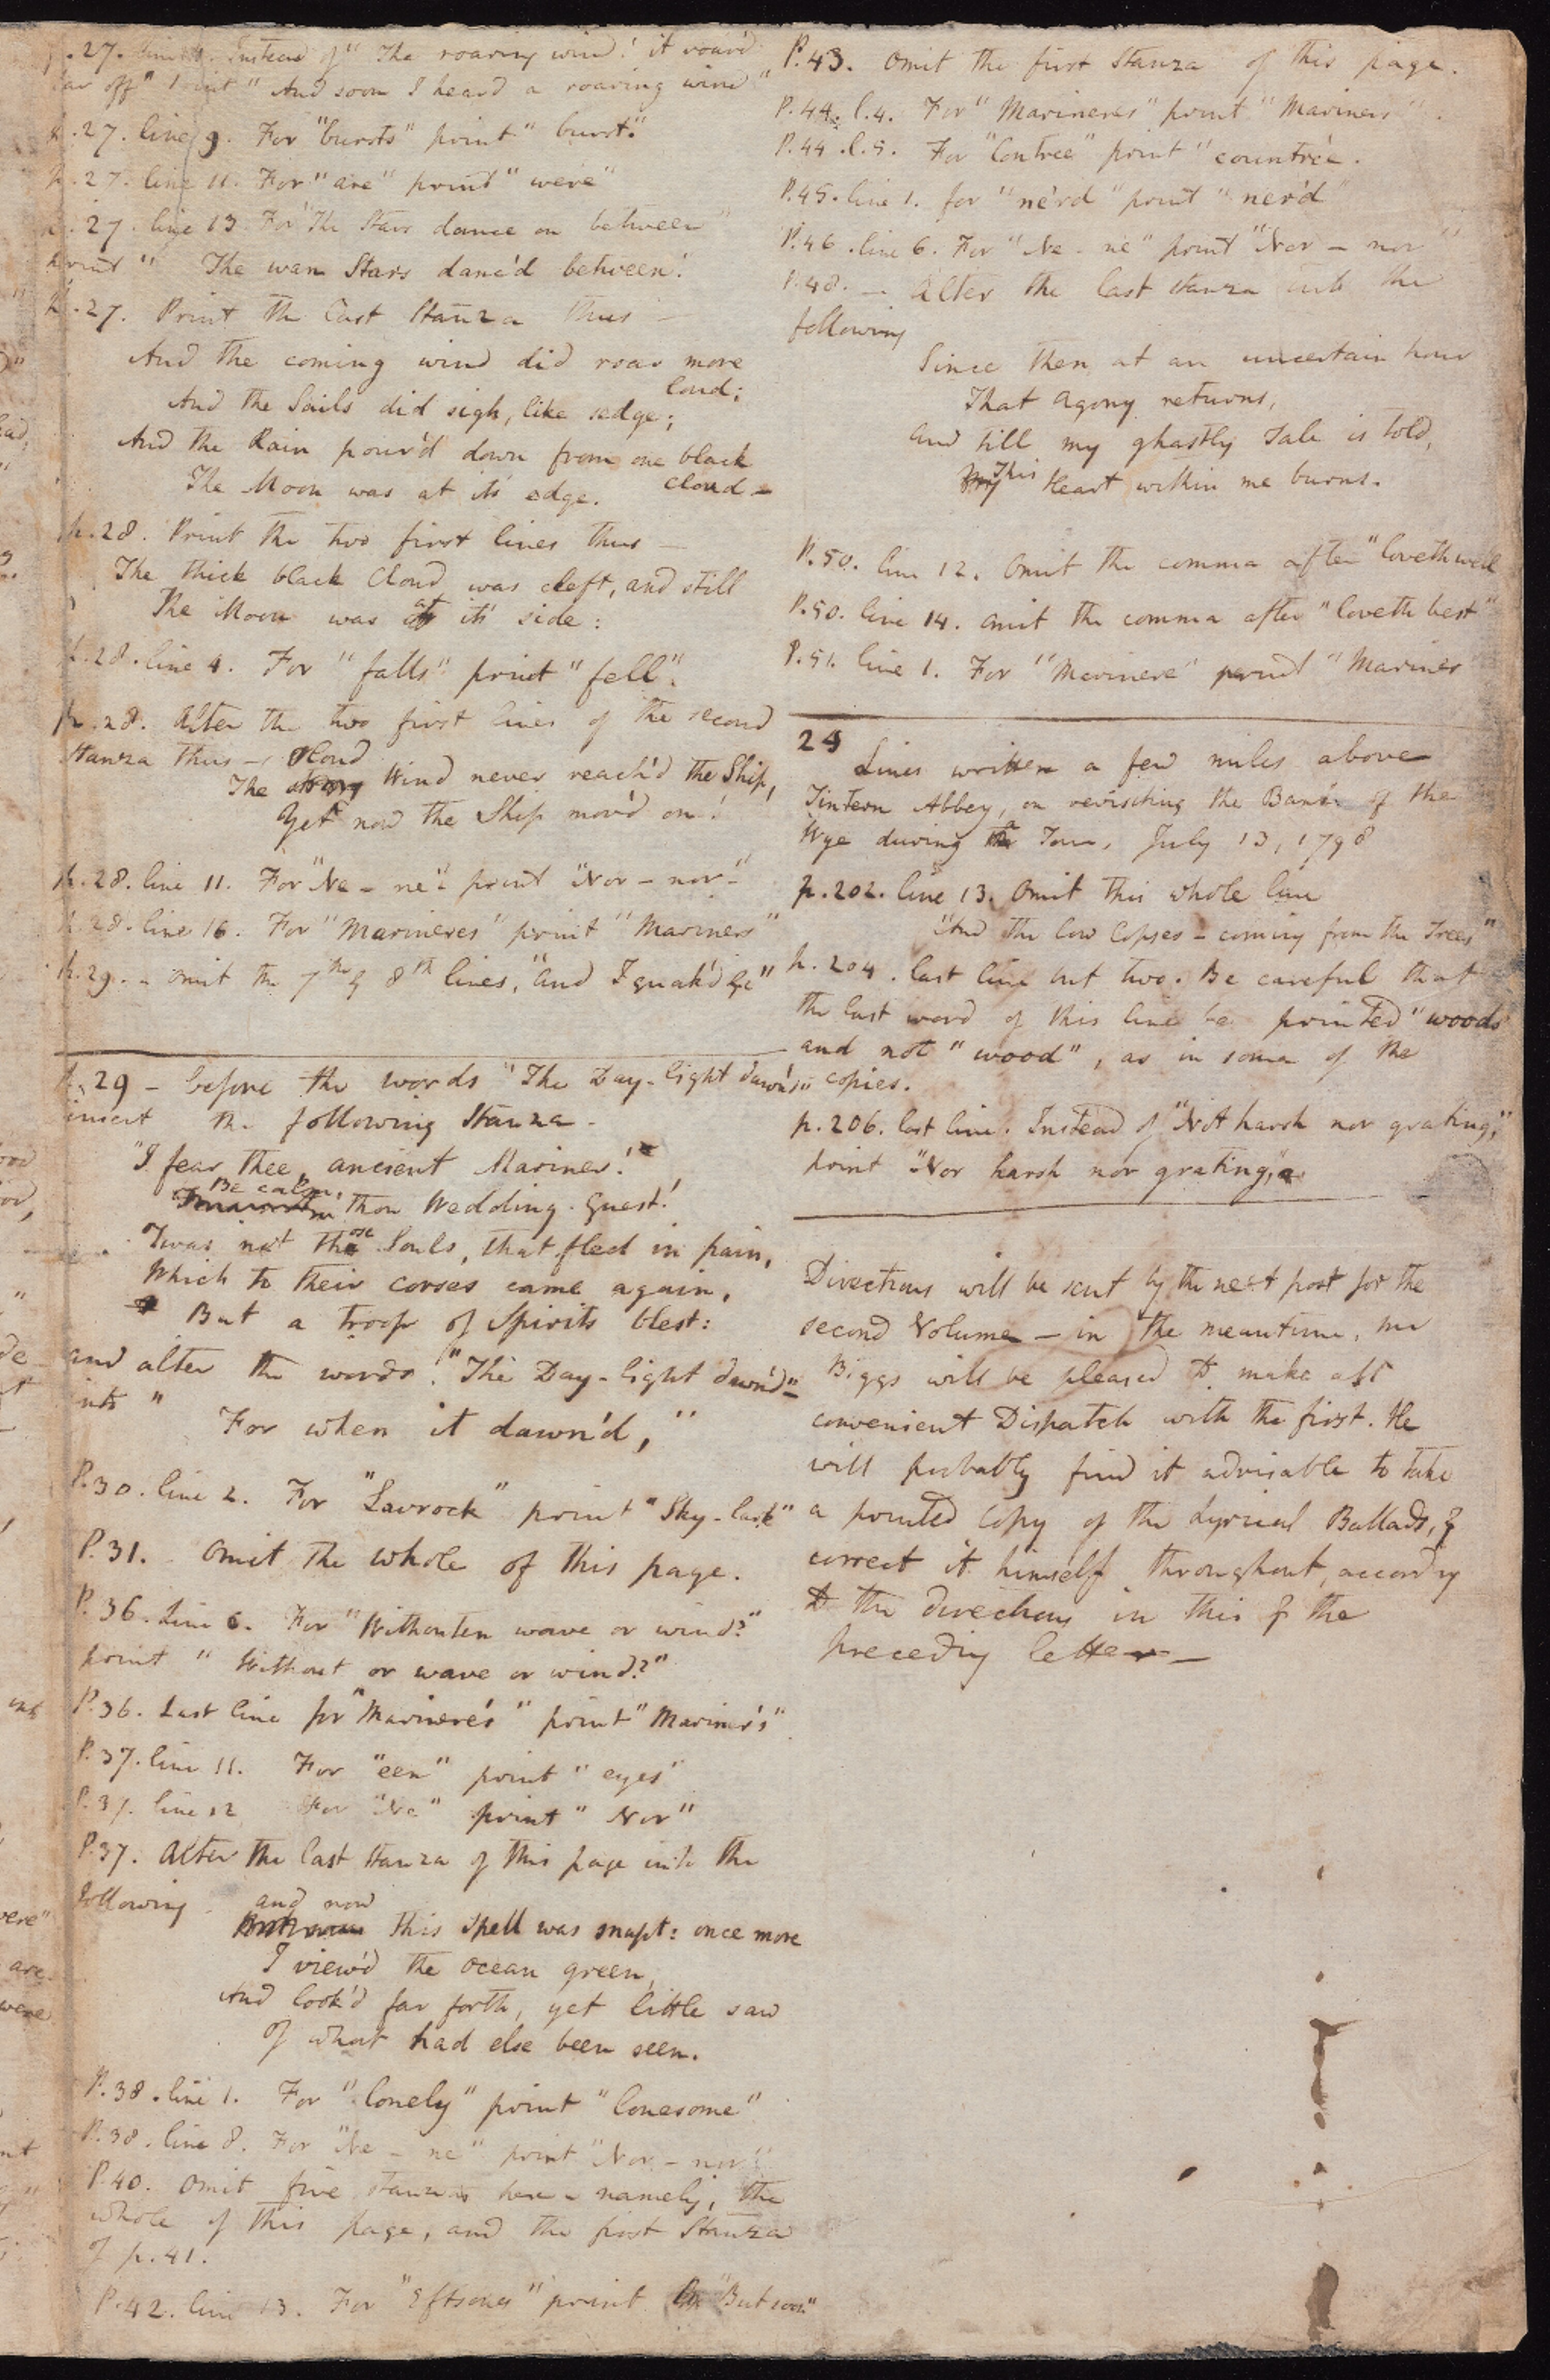 p.27. line Instead of "The roaring wind! it roar'd
far off" print "And soon I heard a roaring wind"
p.27. line 9. For "bursts" print "burst."
p.27. line 11. For "are" print "were"
p.27. line 13 For "The Stars dance on between"
print " The wan Stars danc'd between!
p.27. Print the last Stanza thus —
And the coming wind did roar more
loud;
And the Sails did sigh, like sedge;
And the Rain pour'd down from one black
cloud —
The Moon was at its edge.
p.28. Print the two first lines thus —
The thick black Cloud was cleft, and still
The Moon was at its side:
p.28. line 4. For "falls" print "fell".
p.28. Alter the two first lines of the second
Stanza thus —
The loud Wind never reach'd the Ship,
Yet now the Ship mov'd on!
p.28. line 11. For "Ne – ne" print "Nor – nor"
p.28. line 16. For "Marineres" print "Mariners"
p.29. – Omit the 7th & 8th lines, "And I quak'd &c"
p.29 – before the words "The Day-light dawn'd"
insert the following Stanza –
"I fear thee, ancient Mariner!"
Be calm, thou Wedding-Guest!
'Twas not those Souls, that fled in pain,
Which to their corses came again,
But a troop of Spirits blest:
and alter the words "The Day-light dawn'd"–
into " For when it dawn'd,"
P.30. line 2. For "Lavrock" print "Sky-lark"
P.31. Omit the whole of this page.
P.36. Line 6. For "Withouten wave or wind?"
print "Without or wave or wind?"
P.36. Last line for "Marinere's" print "Mariner's"
P.37. line 11. For "een" print "eyes"
P.37. line 12 For "Ne" print "Nor"
P.37. Alter the last stanza of this page into the
following
and now this spell was snapt: once more
I view'd the ocean green,
And look'd far forth, yet little saw
Of what had else been seen.
P.38. line 1. For "lonely" print "lonesome"
P.38. line 8. For "Ne – ne" print "Nor – nor"
P.40. Omit five stanzas here – namely, the
whole of this page, and the first Stanza
of p.41.
P.42. line 13. For "Eftsones" print "But soon"
P.43. Omit the first Stanza of this page.
P.44. l.4. For "Marineres" print "Mariners".
P.44. l.5. For "Contrée" print "countrée.
P.45. line 1. for "ne'rd" print "ner'd"
P.46. line 6. For "Ne – ne" print "Nor – nor"
P.48. – Alter the last stanza into the
following
Since then at an uncertain hour
That agony returns,
And till my ghastly Tale is told,
This Heart within me burns.
P.50. line 12. Omit the comma after "loveth well
P.50. line 14. Omit the comma after "loveth best"
P.51. line 1. For "Marinere" print "Mariner"
24
Lines written a few miles above
Tintern Abbey, on revisiting the Banks of the
Wye during a Tour, July 13, 1798
p.202. line 13. Omit this whole line
"And the low Copses – coming from the Trees"
p.204. last line but two. Be careful that
the last word of this line be printed "woods
and not "wood", as in some of the
copies.
p.206. last line. Instead of "Not harsh nor grating,"
print "Nor harsh nor grating,"
Directions will be sent by the next post for the
second Volume – in the meantime, Mr
Biggs will be pleased to make all
convenient Dispatch with the first. He
will probably find it advisable to take
a printed Copy of the Lyrical Ballads, &
correct it himself throughout, according
to the directions in this & the
preceding letter —